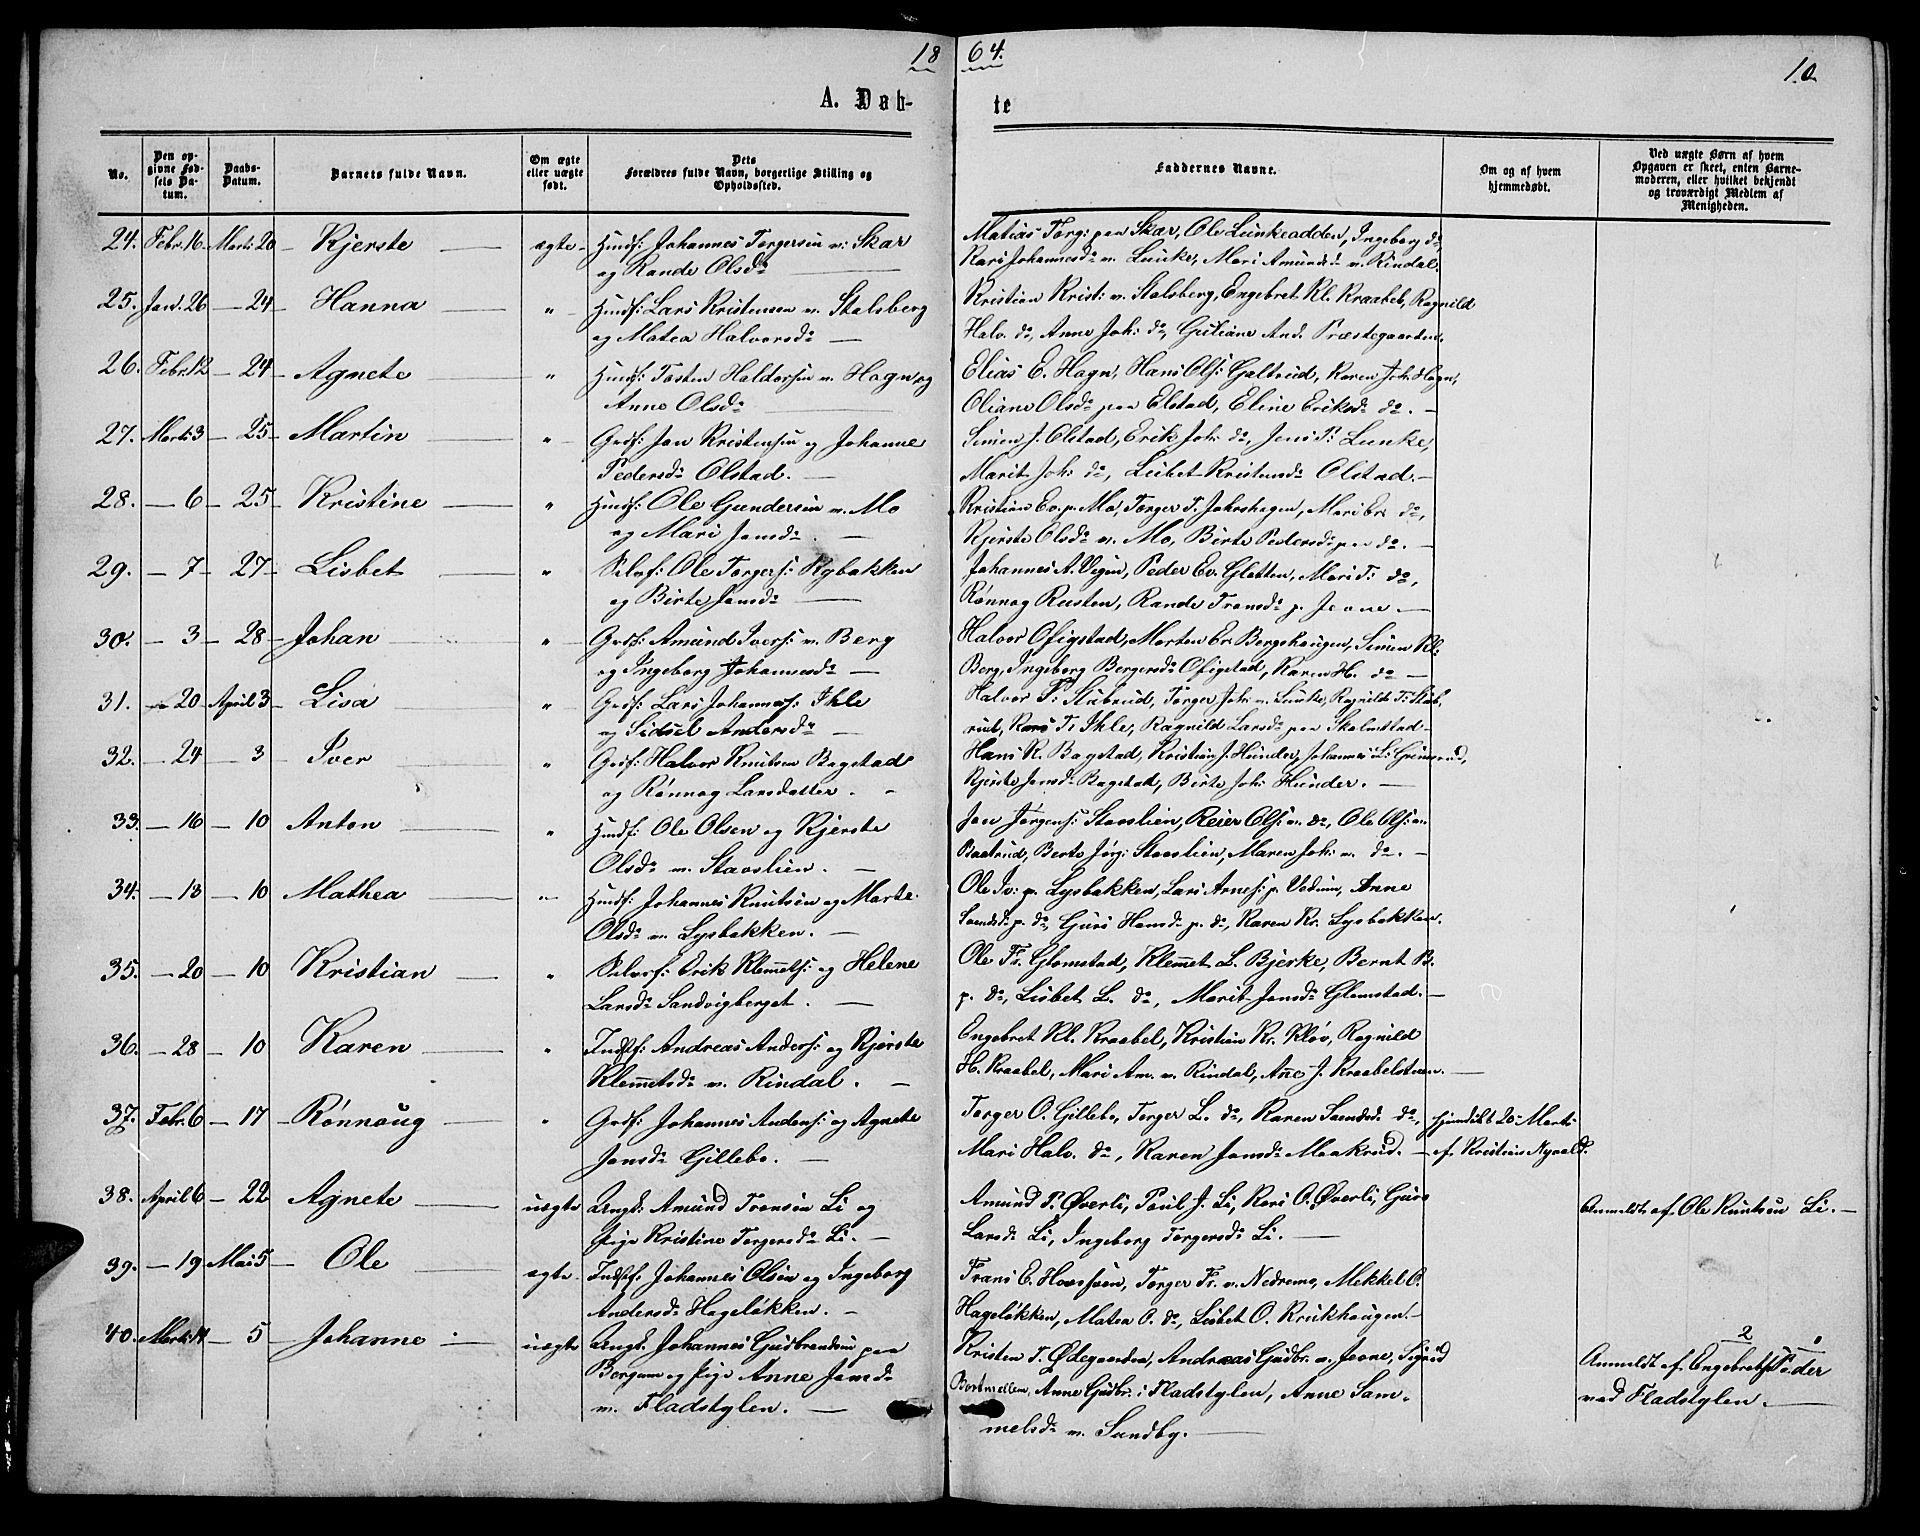 18 64.
10
A. Døb- te
No.
Den opgivne Fødsels Datum.
Daabs-Datum.
Barnets fulde Navn.
Om ægte eller uægte født.
Dets Forældres fulde Navn, borgerlige Stilling og Opholdssted.
Faddernes Navne.
Om og af hvem hjemmedøbt.
Ved uægte Børn af hvem Opgaven er skeet, enten Barnemoderen, eller hvilket bekjendt og troværdigt Medlem af Menigheden.
24. Febr. 16 Marts 20 Kjerste ægte Huusf: Johannes Torgersen v: Skar
og Rande Olsd.
Matias Torg: paa Skar, Ole Lunkeodden, Ingeborg do,
Kari Johannesd. v. Lunke, Mari Amundsd. v. Rindal.
25. Jan. 26 - 24 Hanna " Huusf: Lars Kristensen v. Stalsberg
og Matea Halvorsd.
Kristian Krist: v. Stalsberg, Engebret Kl. Kraabel, Ragnild
Halv. do, Anne Joh: do, Guliane And. Præstegaarden.
26. Febr. 12 - 24 Agnete " Huusf: Tosten Haldorsen v. Hagn og
Anne Olsd.
Elias E. Hagn, Hans Ols: Galtrud, Karen Joh: Hagn,
Oliane Olsd. paa Elstad, Eline Eriksd. do.
27. Marts 3 - 25 Martin " Grdf: Jon Kristensen og Johanne
Pedersd. Olstad.
Simen J. Olstad, Erik Joh: do, Jens P: Lunke,
Marit Joh: do, Lisbet Kristensd. Olstad.
28. - 6 - 25 Kristine " Huusf: Ole Gundersen v. Mo
og Mari Jonsd.
Kristian Ev. p. Mo, Torger T. Jahrshagen, Mari Er. do,
Kjerste Olsd. v. Mo, Birte Pedersd. paa do.
29. - 7 - 27 Lisbet " Selvf: Ole Torgers: Rybakken
og Birte Jonsd.
Johannes A. Vigen, Peder Ev. Glatten, Mari T: do,
Rønnog Rusten, Rande Tronsd. p. Jevne.
30. - 3 - 28 Johan " Grdf: Amund Ivers: v. Berg
og Ingeborg Johannesd.
Halvor Ofigstad, Morten Er. Bergshaugen, Simen Kl:
Berg, Ingeborg Bergersd. Ofigstad, Karen H. do
31. - 20 April 3 Lisa " Grdf: Lars Johanness: Ihle
og Sidsel Andersd.
Halvor P: Stubrud, Torger Joh: v. Lunke, Ragnild T: Stub,
rud, Kari T: Ihle, Ragnild Larsd. paa Skalmstad
32. - 24 - 3 Iver " Grdf: Halvor Knutsen Bagstad
og Rønnog Larsdatter.
Hans K. Bagstad, Kristian J. Hunder, Johannes L:
Kjerste Jonsd. Bagstad, Birte Joh: Hunder.
33. - 16 - 10 Anton " Huusf: Ole Olsen og Kjerste
Olsd. v. Stavslien.
Jon Jørgens: Stavslien, Reier Ols: v. do, Ole Ols: v.
Baatrud, Berte Jørg: Stavslien, Maren Joh: v. do.
34. - 13 - 10 Mathea " Huusf: Johannes Knutsen og Marte
Olsd. v. Lysbakken.
Ole Iv: p. Lysbakken, Lars Arnes: p. Vedum, Anne
Svendsd. p. do, Guri Hansd. p. do, Karen Kr. Lysbakken.
35. - 20 - 10 Kristian " Selvf: Erik Klemets: og Helene
Larsd. Sandvigberget.
Ole Fr. Glomstad, Klemet L. Bjerke, Bernt B.
p. do, Lisbet L. do, Marit Jonsd. Glomstad.
36. - 28 - 10 Karen " Indstf: Andreas Anders: og Kjerste
Klemetsd. v. Rindal.
Engebret Kl. Kraabel, Kristian Kr. Kløv, Ragnild
H. Kraabel, Mari Am. v. Rindal, Ane J. Kraabelstuen.
37. Febr. 6 - 17 Rønnoug " Grdf: Johannes Anders: og Agnete
Jonsd. Gillebo.
Torger O. Gillebo, Torger L. do, Karen Svendsd. do,
Mari Halv. do, Karen Jonsd. Maakrud.
hjemdøbt 20 Marts
af Kristian Nyvold.
38. April 6 - 22 Agnete uægte Ungk: Amund Tronsen Li og
Pige Kristine Torgersd. Li.
Amund P. Øverli, Poul J. Li, Kari O. Øverli, Guri
Larsd. Li, Ingeborg Torgersd. Li.
Anmeldt af Ole Knutsen Li.
39. - 19 Mai 5 Ole ægte Indstf: Johannes Olsen og Ingeborg
Andersd. Hageløkken.
Frans E. Hovsveen, Torger Fr. v. Nedremo, Mekkel O.
Hageløkken, Matea O. do, Lisbet O. Krukhaugen.
40. Marts 14 - 5 Johanne uægte Ungk. Johannes Gudbrandsen paa
Bergum og Pige Anne Jonsd.
v. Fladstylen.
Kristen T. Ødegaarden, Andreas Gudbr. v. Jevne, Sigrid
Anne Gudbr. i Fladstylen, Anne Sam-
melsd. v. Sundby.
2
Anmeldt af Engebret Peder
ved Fladstylen.